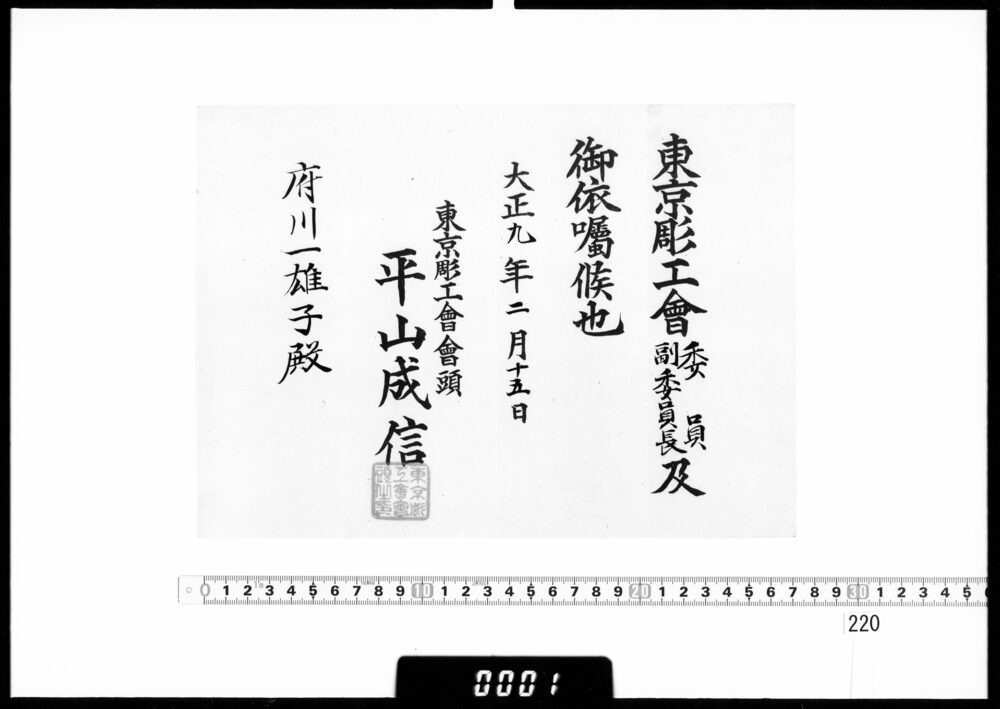 東京彫工會委員副委員長及
御依囑候也
大正九年二月十五日
東京彫工會會頭
平山成信
東京彫工會會頭之印
府川一雄子殿
0 1 2 3 4 5 6 7 8 9 10 1 2 3 4 5 6 7 8 9 20 1 2 3 4 5 6 7 8 9 30 1 2 3 4 5 6
220
0001